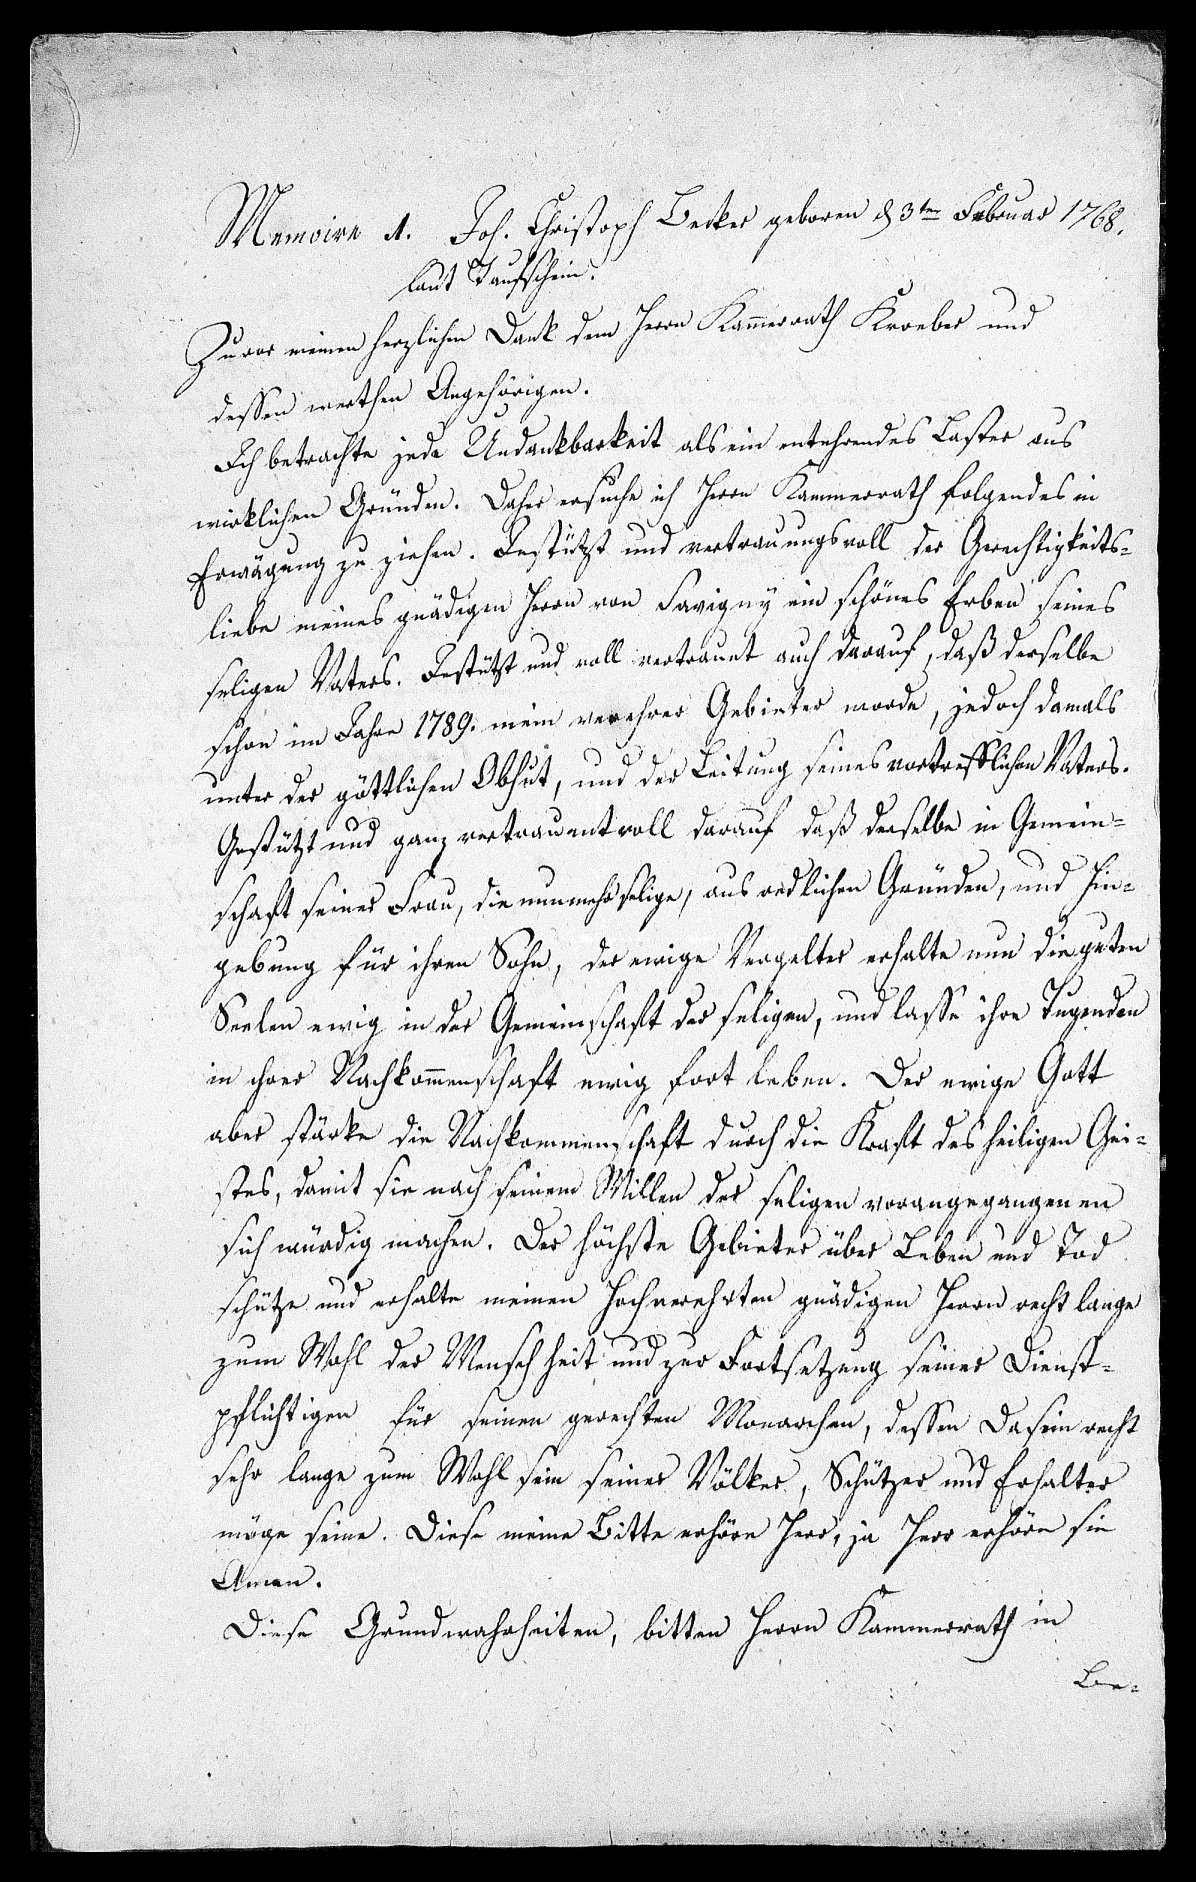 Memoire A. Joh. Christoph Becker geboren d 3ten Februar 1768.
laut Taufschein.
Zuvor meinen herzlichen Dank dem Herrn Kam̅errath Kroeber und
dessen werthen Angehörigen.
Ich betrachte jede Undankbarkeit als ein entehrendes Laster aus
wirklichen Gründen. Daher ersuche ich Herrn Kammerrath folgendes in
Erwägung zu ziehen. Gestützt und vertrauungsvoll der Gerechtigkeits-
liebe meines gnädigen Herrn von Savigny ein schönes Erben seines
seligen Vaters. Gestützt und voll vertrauet auch darauf, daß derselbe
schon im Jahre 1789. mein verehrer Gebieter worde, jedoch damals
unter der göttlichen Obhut, und der Leitung seines vortrefflichen Vaters.
Gestützt und ganz vertrauentvoll darauf daß derselbe in Gemein-
schaft seiner Frau, die nunmehr selige, aus redlichen Gründen, und Hin-
gebung für ihren Sohn, der ewige Vergelter erhalte nun die guten
Seelen ewig in der Gemeinschaft der seligen, und lasse ihre Tugenden
in ihrer Nachkom̅enschaft ewig fort leben. Der ewige Gott
aber stärke die Nachkommenschaft durch die Kraft des heiligen Gei-
stes, damit sie nach seinem Willen der seligen vorangegangenen
sich würdig machen. Der höchste Gebieter über Leben und Tod
schütze und erhalte meinen Hochverehrten gnädigen Herrn recht lange
zum Wohl der Menschheit und zur Fortsetzung seiner Dienst-
pflichtigen für seinen gerechten Monarchen, dessen Dasein recht
sehr lange zum Wohl sein seiner Völker, Schützer und Erhalter
möge seine. Diese meine Bitte erhöre Herr, ja Herr erhöre sie
Amen.
Diese Grundwahrheiten, bitten Herrn Kammerrath in
Be-